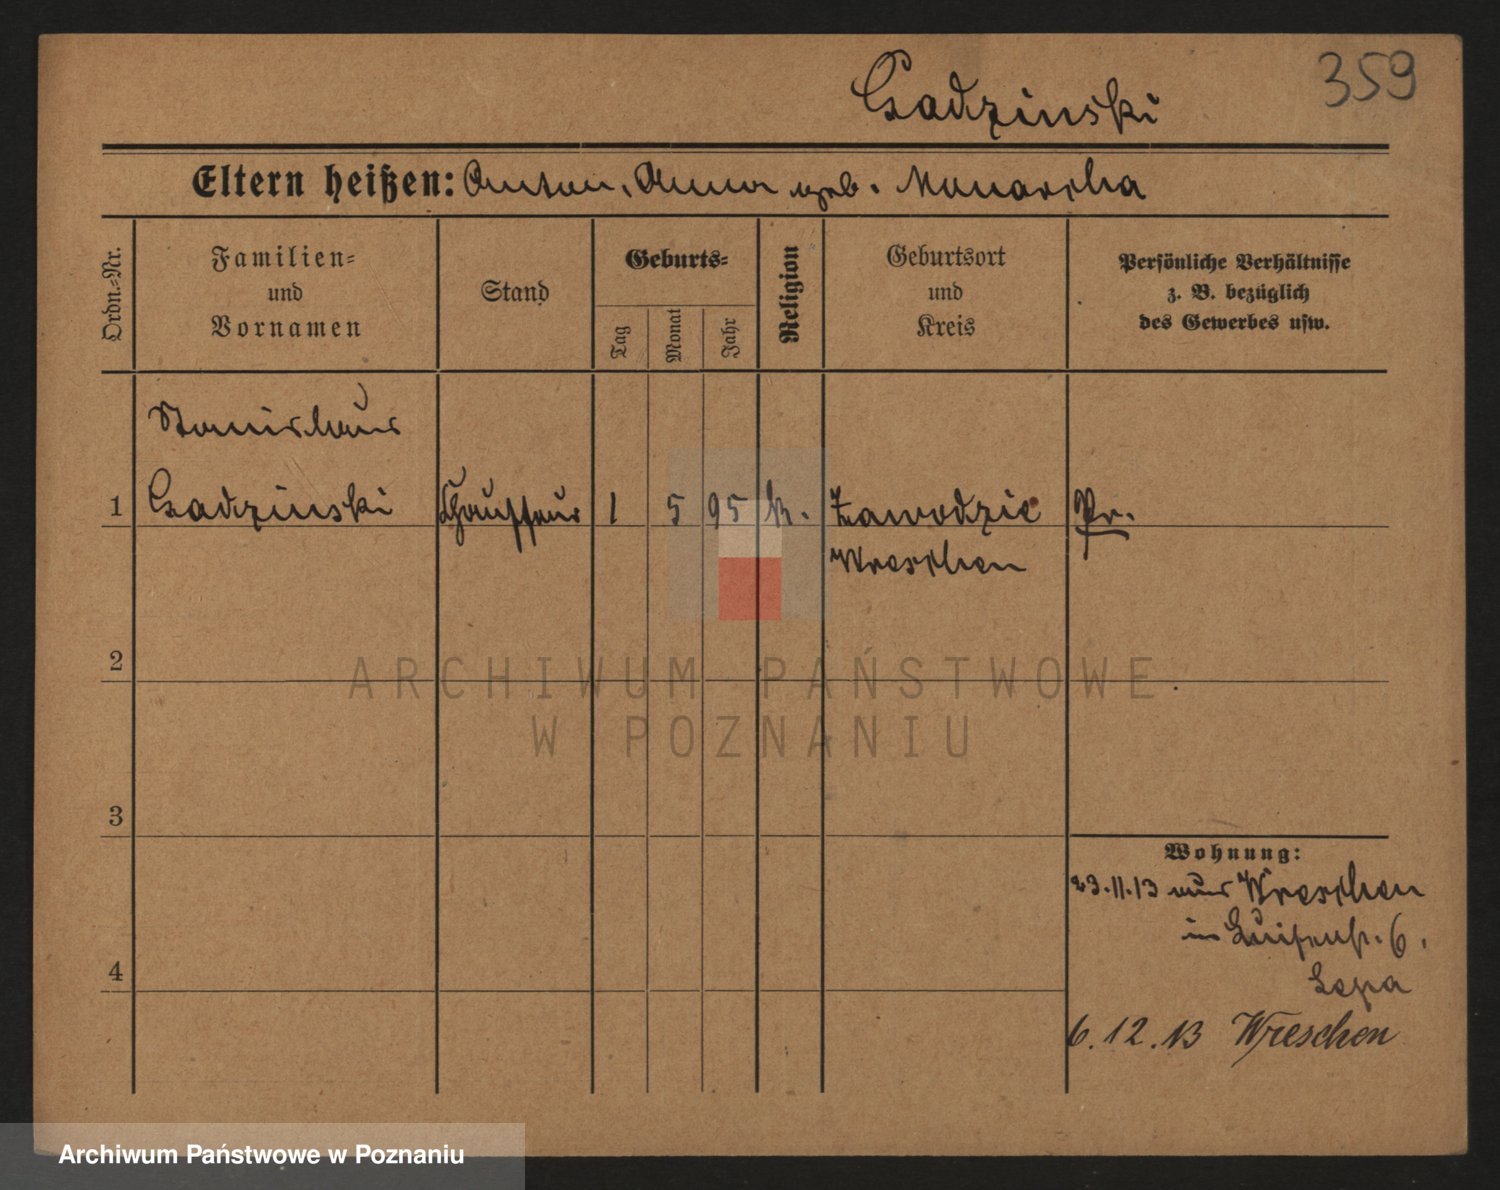 359
Gadzinski
Eltern heißen: Anton, Anna geb. Monarcha
Ordn.-Nr.
Familien-
und
Vornamen
Stand
Geburts-
Tag
Monat
Jahr
Religion
Geburtsort
und
Kreis
Persönliche Verhältnisse
z. B. bezüglich
des Gewerbes usw.
Stanislaus
1 Gadzinski Chauffeur 1 5 95 k. Zawodzie Pr.
Wreschen
2
ARCHIWUM PAŃSTWOWE
W POZNANIU
3
Wohnung:
23.11.13 aus Wreschen
in Luisenst. 6.
4
Lepa
6.12.13 Wreschen
Archiwum Państwowe w Poznaniu